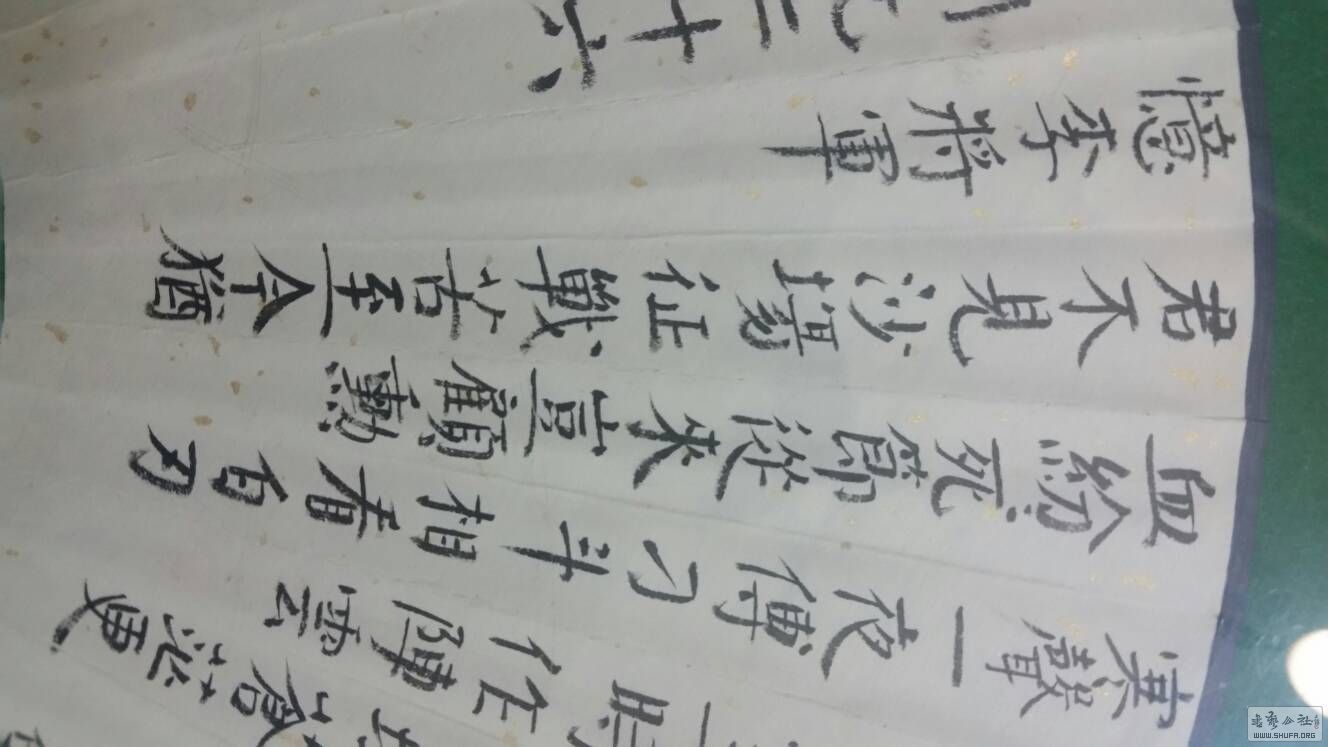 蒼茫更
三時作陣雲
寒聲一夜傳刁斗相看白刃
血紛死節從來豈顧勳
君不見沙場征戰苦至今猶
憶李將軍
元二十六
書藝公社
WWW.SHUFA.ORG